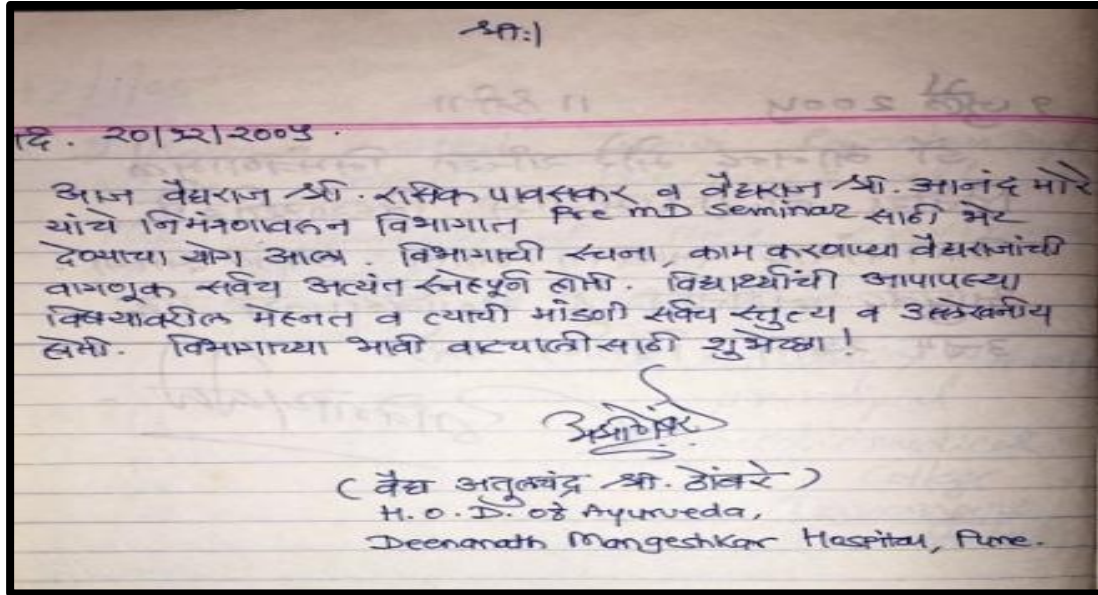 श्रीः।
दि. २०/१२/२००५.
आज वैद्यराज श्री. रसिक पावसकर व वैद्यराज श्री. आनंद मोरे
यांचे निमंत्रणावरुन विभागात Pre MD Seminar साठी भेट
देण्याचा योग आला. विभागाची रचना, काम करणाऱ्या वैद्यराजांची
वागणूक सर्वच अत्यंत स्नेहपूर्ण होती. विद्यार्थ्यांची आपापल्या
विषयावरील मेहनत व त्याची मांडणी सर्वच स्तुत्य व उल्लेखनीय
होती. विभागाच्या भावी वाटचालीसाठी शुभेच्छा!
(वैद्य अतुलचंद्र श्री. ठोंबरे)
H.O.D. of Ayurveda,
Deenanath Mangeshkar Hospital, Pune.